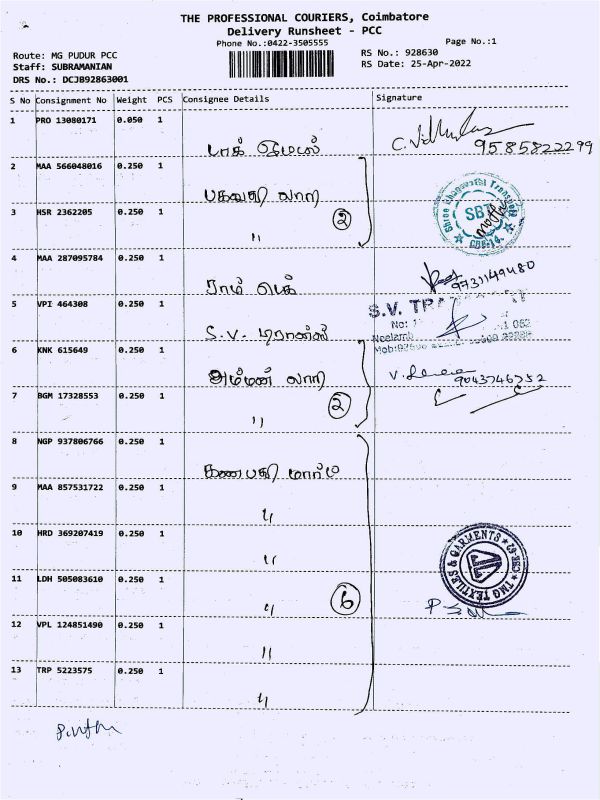 THE PROFESSIONAL COURIERS, Coimbatore
Delivery Runsheet - PCC
Phone No.:0422-3505555
Page No.:1
Route: MG PUDUR PCC
RS No.: 928630
Staff: SUBRAMANIAN
RS Date: 25-Apr-2022
DRS No.: DCJB92863001
S No Consignment No Weight PCS Consignee Details Signature
1 PRO 13080171 0.050 1
9585822299
2 MAA 566048016 0.250 1
பகவதி லாரி
Shree Bhagwathi Transport
SBT
CBE-14.
3 HSR 2362205 0.250 1 " 2
4 MAA 287095784 0.250 1
ராம் பெக்
9731149480
5 VPI 464308 0.250 1
S.V. டிரான்ஸ்
S.V.
No:
6 KNK 615649 0.250 1
அம்மன் லாரி
9043746352
7 BGM 17328553 0.250 1 " 2
8 NGP 937806766 0.250 1
கணபதி மார்ம
9 MAA 857531722 0.250 1 "
10 HRD 369207419 0.250 1 "
TMG TEXTILES & GARMENTS
11 LDH 505083610 0.250 1 " 6
12 VPL 124851490 0.250 1 "
13 TRP 5223575 0.250 1 "